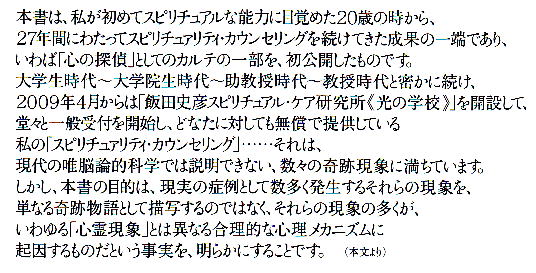 本書は、私が初めてスピリチュアルな能力に目覚めた20歳の時から、
27年間にわたってスピリチュアリティ・カウンセリングを続けてきた成果の一端であり、
いわば「心の探偵」としてのカルテの一部を、初公開したものです。
大学生時代~大学院生時代~助教授時代~教授時代と密かに続け、
2009年4月からは「飯田史彦スピリチュアル・ケア研究所《光の学校》」を開設して、
堂々と一般受付を開始し、どなたに対しても無償で提供している
私の「スピリチュアリティ・カウンセリング」……それは、
現代の唯脳論的科学では説明できない、数々の奇跡現象に満ちています。
しかし、本書の目的は、現実の症例として数多く発生するそれらの現象を、
単なる奇跡物語として描写するのではなく、それらの現象の多くが、
いわゆる「心霊現象」とは異なる合理的な心理メカニズムに
起因するものだという事実を、明らかにすることです。 (本文より)